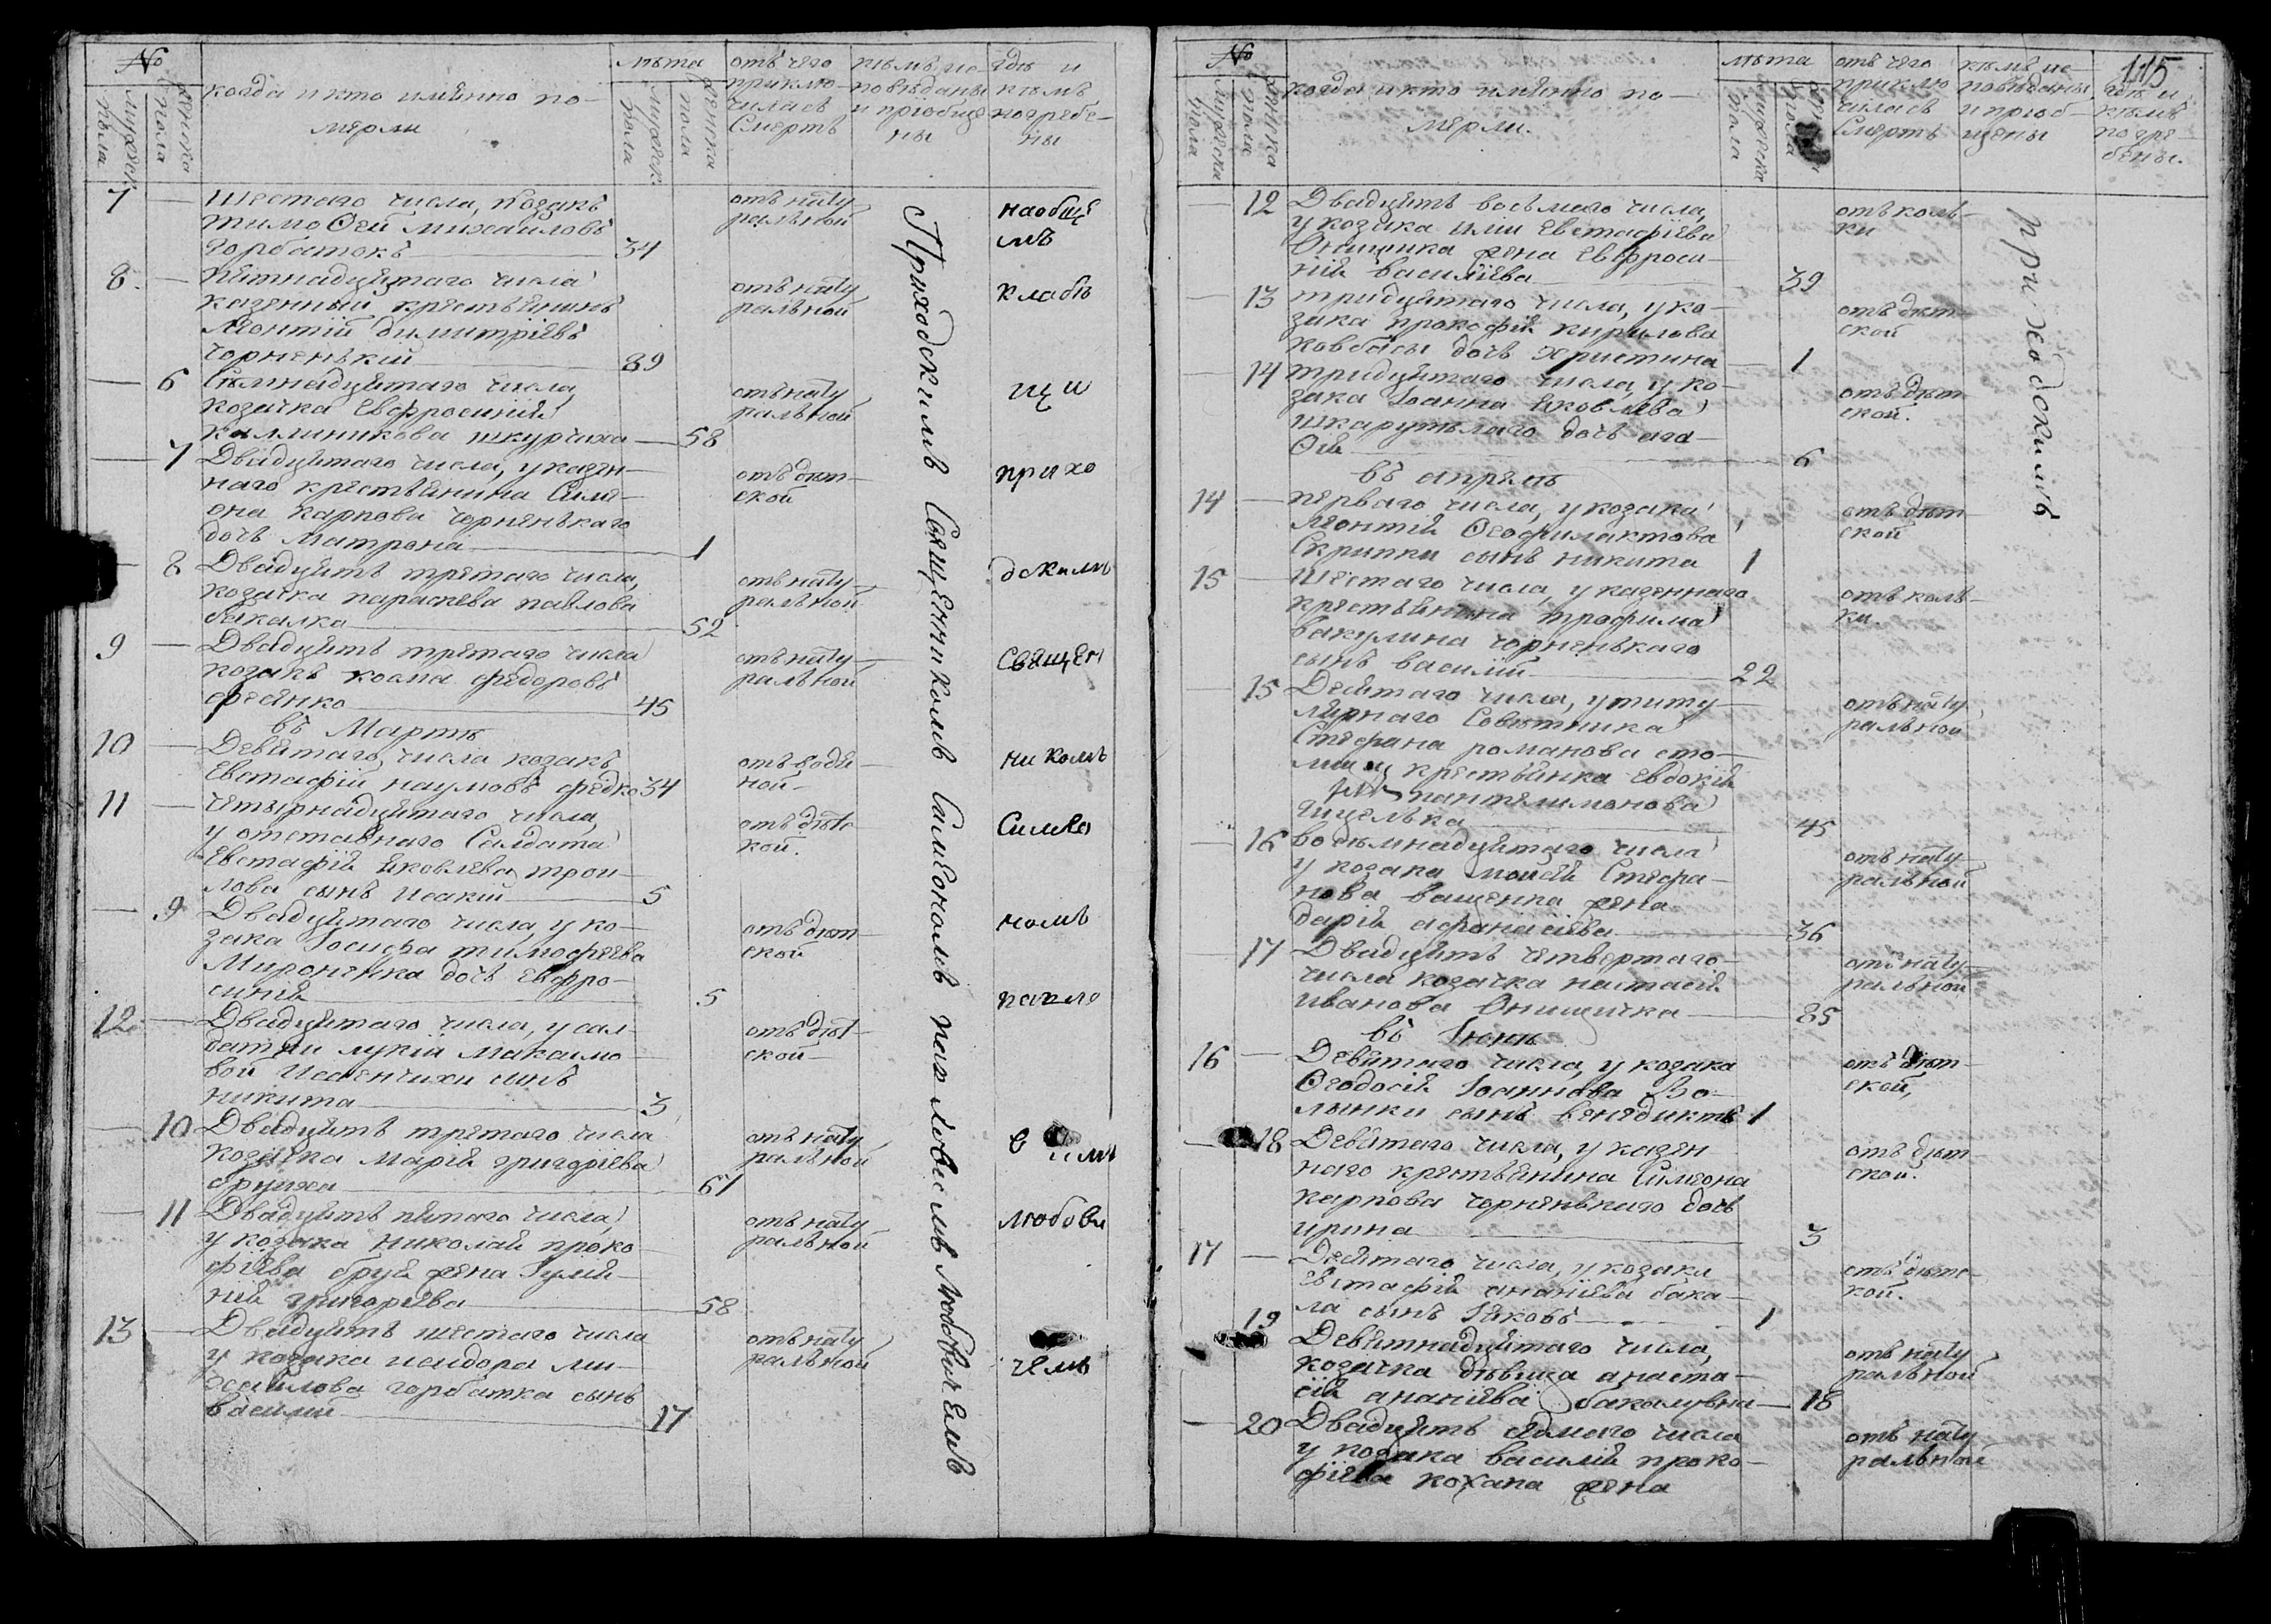 №
мужеска пола
женска пола
когда и кто имянно по-
мерли
лѣта
мужеск: пола
женска пола
отъ чего
приклю-
чилась
Смерть
кѣмъ ис-
повѣданы
и пріобще
ны
гдѣ и
кѣмъ
погребе-
ны
7 — шестаго числа, козакъ
тимоѳей михаиловъ
горбатокъ — 34
отъ нату
ральной
8. — пятнадцятаго числа
казенный крестьянинъ
леонтій димитріевъ
чорненькій — 89
отъ нату
ральной
— 6 Семнадцятаго числа,
козачка Евфросинія
каллиникова шкурчиха — 58
отъ нату
ральной
— 7 Двадцятаго числа, у казен-
наго крестьянина Симе-
она карпова чорненькаго
дочь матрона — 1
отъ дѣт-
ской
— 8 Двадцять третаго числа,
козачка параскева павлова
бакалка — 52
отъ нату-
ральной
9 — Двадцять третаго числа
козакъ косма федоровъ
фесенко — 45
отъ нату-
ральной
въ Мартѣ
10 — Девятаго числа козакъ
Евстафій наумовъ федко 34
отъ водя
ной
11 — четырнадцятаго числа,
у отставнаго Салдата
Евстафія яковлева трои-
лова сынъ исакій — 5
отъ дѣтс
кой.
— 9 Двадцятаго числа, у ко-
зака Іосифа тимофеева
Мироненка дочь Евфро-
синія — 5
отъ дѣт-
ской
12 — Двадцятаго числа, у сал-
датки лукіи максимо-
вой Исаенчихи сынъ
никита — 3
отъ дѣт-
ской
— 10 Двадцять третаго числа
козачка марія григоріева
— 61
отъ нату
ральной
— 11 Двадцять пятаго числа,
у козака николая проко
фіева бруя жена Гулія-
нія григоріева — 58
отъ нату
ральной
13 — Двадцять шестаго числа
у козака исидора ми-
хайлова горбатка сынъ
василій — 17
отъ нату
ральной
Приходскимъ Священникомъ Симеономъ павловымъ Любовичемъ
на общѣ
мъ
кладби
щи
прихо
дскимъ
Священ
никомъ
Симео
номъ
павло
в имъ
любови
чемъ
115
№
мужеска пола
женска пола
когда и кто имянно по-
мерли.
лѣта
мужеска пола
пола
отъ чего
приклю
чилась
Смерть
кѣмъ ис
повѣданы
и приоб-
щены
гдѣ и
кѣмъ
погре-
бены.
— 12 Двадцять восьмаго числа,
у козака иліи Евстафіева
Онищенка жена Евфроси-
нія василіева — 39
отъ коль-
ки
— 13 тридцятаго числа, у ко-
зака прокофія кирилова
ковбасы дочь христина — 1
отъ дѣт-
ской
— 14 тридцятаго числа, у ко-
зака Іоанна яковлева
шкарупѣлаго дочь ага-
ѳія — 6
отъ дѣт
ской.
въ апрелѣ
14 — перваго числа, у козака
леонтія Ѳеофилактова
Скрипки сынъ никита 1
отъ дѣт
ской
15 — шестаго числа, у казеннаго
крестьянина трофима
вакулина чорненькаго
сынъ василій — 22
отъ коль-
ки.
— 15 Десятаго числа, у титу-
лярнаго Совѣтника
Стефана романова сто-
лицы крестьянка Евдокія
пантелимонова
— 45
отъ нату
ральной
— 16 восьмнадцятаго числа
у козака моисея Стефа-
нова ващенка жена
дарія афанасіева — 36
отъ нату-
ральной
— 17 Двадцять четвертаго
числа козачка настасія
иванова Онищичка — 85
отъ нату-
ральной
въ Іюнѣ
16 — Девятаго числа, у козака
Ѳеодосія Іоаннова Во-
лынки сынъ венедиктъ 1
отъ дѣт-
ской,
— 18 Девятаго числа, у казен
наго крестьянина Симеона
карпова чорненькаго дочь
ирина — 3
отъ дѣт-
ской.
17 — Десятаго числа, у козака
Евстафія ананіева бака-
ла сынъ Іяковъ — 1
отъ дѣтс-
кой.
19 Девятнадцятаго числа,
козачка дѣвица анаста-
сія ананіева бакалувна — 18
отъ нату
ральной
— 20 Двадцять седмаго числа
у козака василія проко-
фіева кохана жена
отъ нату
ральной
приходскимъ